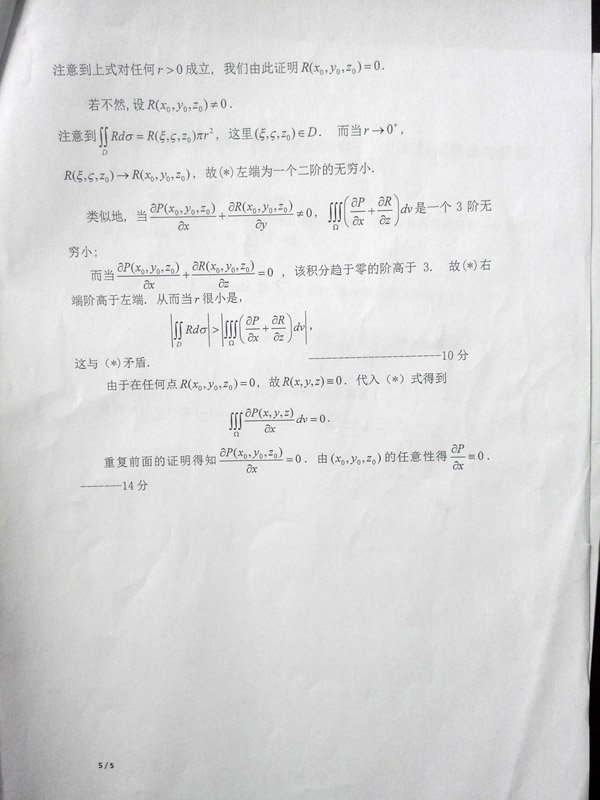 注意到上式对任何 r > 0 成立, 我们由此证明 R(x₀, y₀, z₀) = 0.
若不然, 设 R(x₀, y₀, z₀) ≠ 0.
注意到 ∬_D Rdσ = R(ξ, ς, z₀)πr², 这里 (ξ, ς, z₀) ∈ D. 而当 r → 0⁺,
R(ξ, ς, z₀) → R(x₀, y₀, z₀), 故(*)左端为一个二阶的无穷小.
类似地, 当 ∂P(x₀, y₀, z₀)/∂x + ∂R(x₀, y₀, z₀)/∂y ≠ 0, ∭_Ω (∂P/∂x + ∂R/∂z) dv 是一个 3 阶无
穷小;
而当 ∂P(x₀, y₀, z₀)/∂x + ∂R(x₀, y₀, z₀)/∂z = 0 , 该积分趋于零的阶高于 3. 故(*)右
端阶高于左端. 从而当 r 很小是,
|∬_D Rdσ| > |∭_Ω (∂P/∂x + ∂R/∂z) dv|,
这与 (*)矛盾. ----------------------10 分
由于在任何点 R(x₀, y₀, z₀) = 0, 故 R(x, y, z) ≡ 0. 代入 (*) 式得到
∭_Ω ∂P(x, y, z)/∂x dv = 0.
重复前面的证明得知 ∂P(x₀, y₀, z₀)/∂x = 0. 由 (x₀, y₀, z₀) 的任意性得 ∂P/∂x ≡ 0.
-------14 分
5 / 5